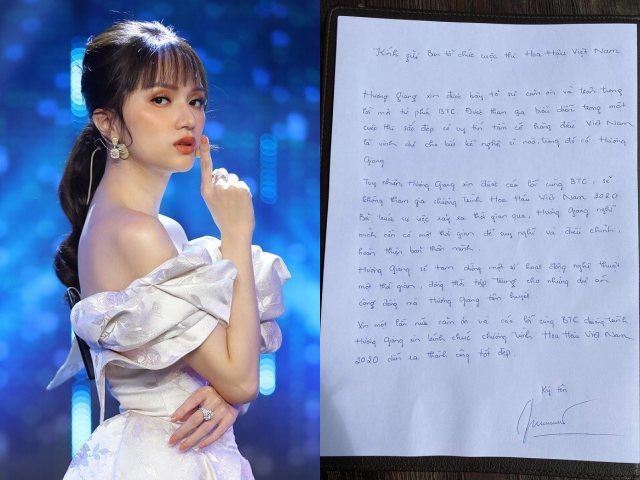 Kính gửi Ban tổ chức cuộc thi Hoa Hậu Việt Nam
Hương Giang xin được bày tỏ sự cảm ơn và trân trọng
lời mời từ phía BTC. Được tham gia biểu diễn trong một
cuộc thi sắc đẹp có uy tín tầm cỡ hàng đầu Việt Nam
là vinh dự cho bất kể nghệ sĩ nào, trong đó có Hương
Giang.
Tuy nhiên, Hương Giang xin được cáo lỗi cùng BTC, sẽ
không tham gia chương trình Hoa Hậu Việt Nam 2020.
Bởi trước sự việc xảy ra thời gian qua, Hương Giang nghĩ
mình cần có một thời gian để suy nghĩ và điều chỉnh,
hoàn thiện bản thân mình.
Hương Giang sẽ tạm dừng một số hoạt động nghệ thuật
một thời gian, đồng thời tập trung cho những dự án
cộng đồng mà Hương Giang tâm huyết.
Xin một lần nữa cảm ơn và cáo lỗi cùng BTC chương trình
Hương Giang xin kính chúc chương trình Hoa Hậu Việt Nam
2020 diễn ra thành công tốt đẹp.
Ký tên